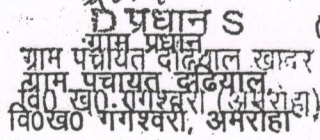 D प्रधान S
ग्राम प्रधान
ग्राम पंचायत दढियाल खादर
ग्राम पंचायत दढियाल,
वि0 ख0 गंगेश्वरी (अमरोहा)
वि0ख0 गंगेश्वरी, अमरोहा